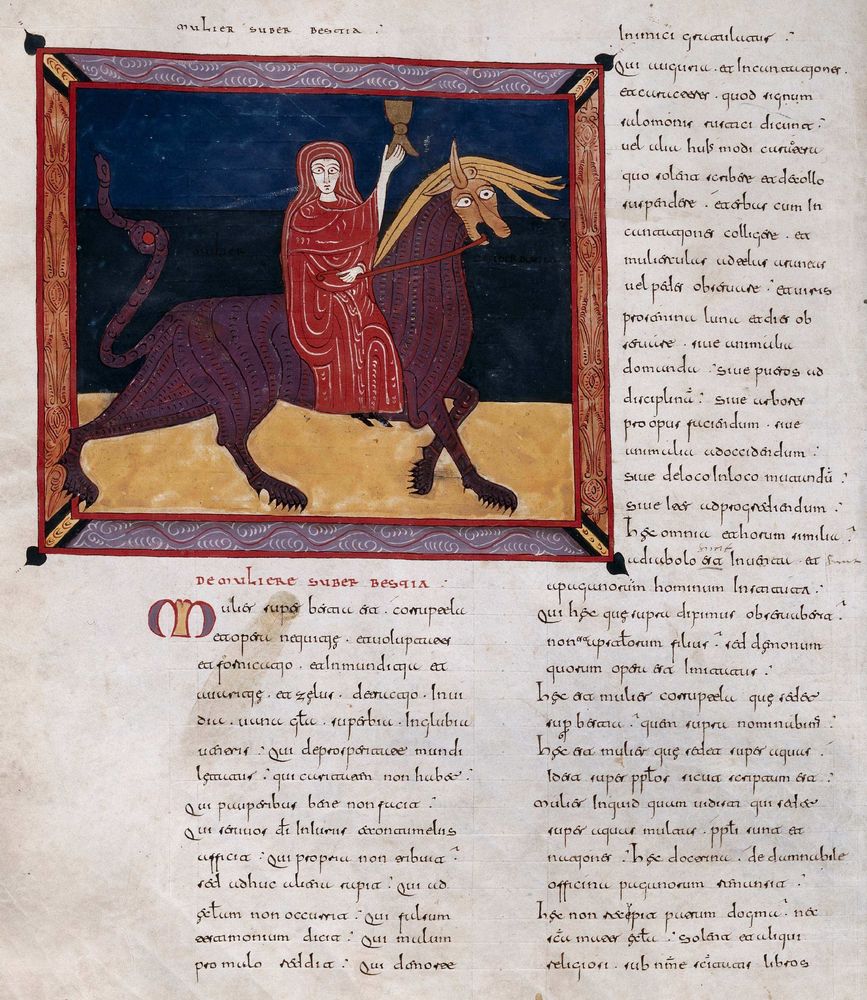 MULIER SUBER BESTIA
MULIER
DE MULIERE SUBER BESTIA
Mulier super bestia est corruptela
et opera nequitię et uoluptates
et fornicatio et Inmunditia et
auaritię et zęlus detractio Inui
dia uana gła superbia Inglubia
uentris Qui deprosperitate mundi
lętatur qui caritatem non habet
Qui pauperibus bene non facit
Qui seruos di InIuriis et contumeliis
afficit Qui propria non tribuit
sed adhuc aliena rapit Qui ad
ęcłam non occurrit Qui falsum
testimonium dicit Qui malum
pro malo reddit Qui
Inimici gratulatur
Qui auguria et Incantationes
et caracteres quod signum
salomonis rustici dicunt
uel alia husmodi
quo solent scribere et decollo
suspendere et erbas cum In
cantationes colligere et
mulierculas adtelas araneas
uel obseruare
luna et dies ob
seruare siue animalia
domanda siue pueros ad
disciplinā siue arbores
pro opus faciendum siue
animalia adoccidendum
siue deloco Inloco mutandū
siue adprogrediendum
hęc omnia et horum similia
adiabolo Inuenta et
apaganorum hominum Instituta
Qui hęc quę supra diximus obseruaberit
non filius sed dęmonum
quorum opera est Imitatus
hęc est mulier corruptela quę sedet
sup bestia quam supra nominabim
hęc est mulier quę sedet super aquas
Idest super pplos sicut scriptum est
mulier Inquid quam uidisti qui sedet
super aquas multas ppli sunt et
nationes hęc doctrina de damnabile
officina paganorum remansit
hęc non recepit patrum dogma nec
scā mater ęcła Solent et aliqui
religiosi sub nme scitatis libros